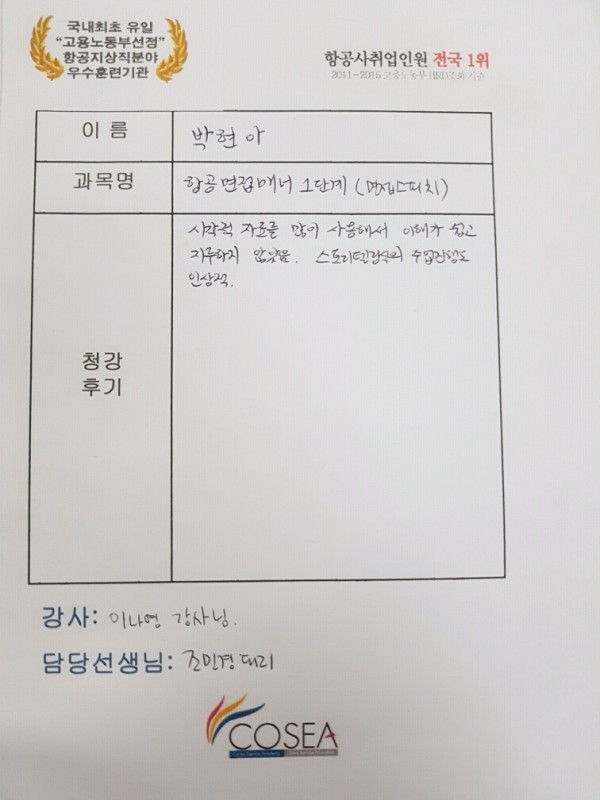 국내최초 유일
"고용노동부선정"
항공지상직분야
우수훈련기관
항공사취업인원 전국 1위
2011~2015 고용노동부 HRD조회 기준
이 름
박현아
과목명
항공면접매너 1단계 (면접스피치)
청강
후기
시각적 자료를 많이 사용해서 이해가 쉽고
지루하지 않았음. 스토리텔링식의 수업진행도
인상적.
강사: 이나영 강사님.
담당선생님: 조민경 대리
COSEA